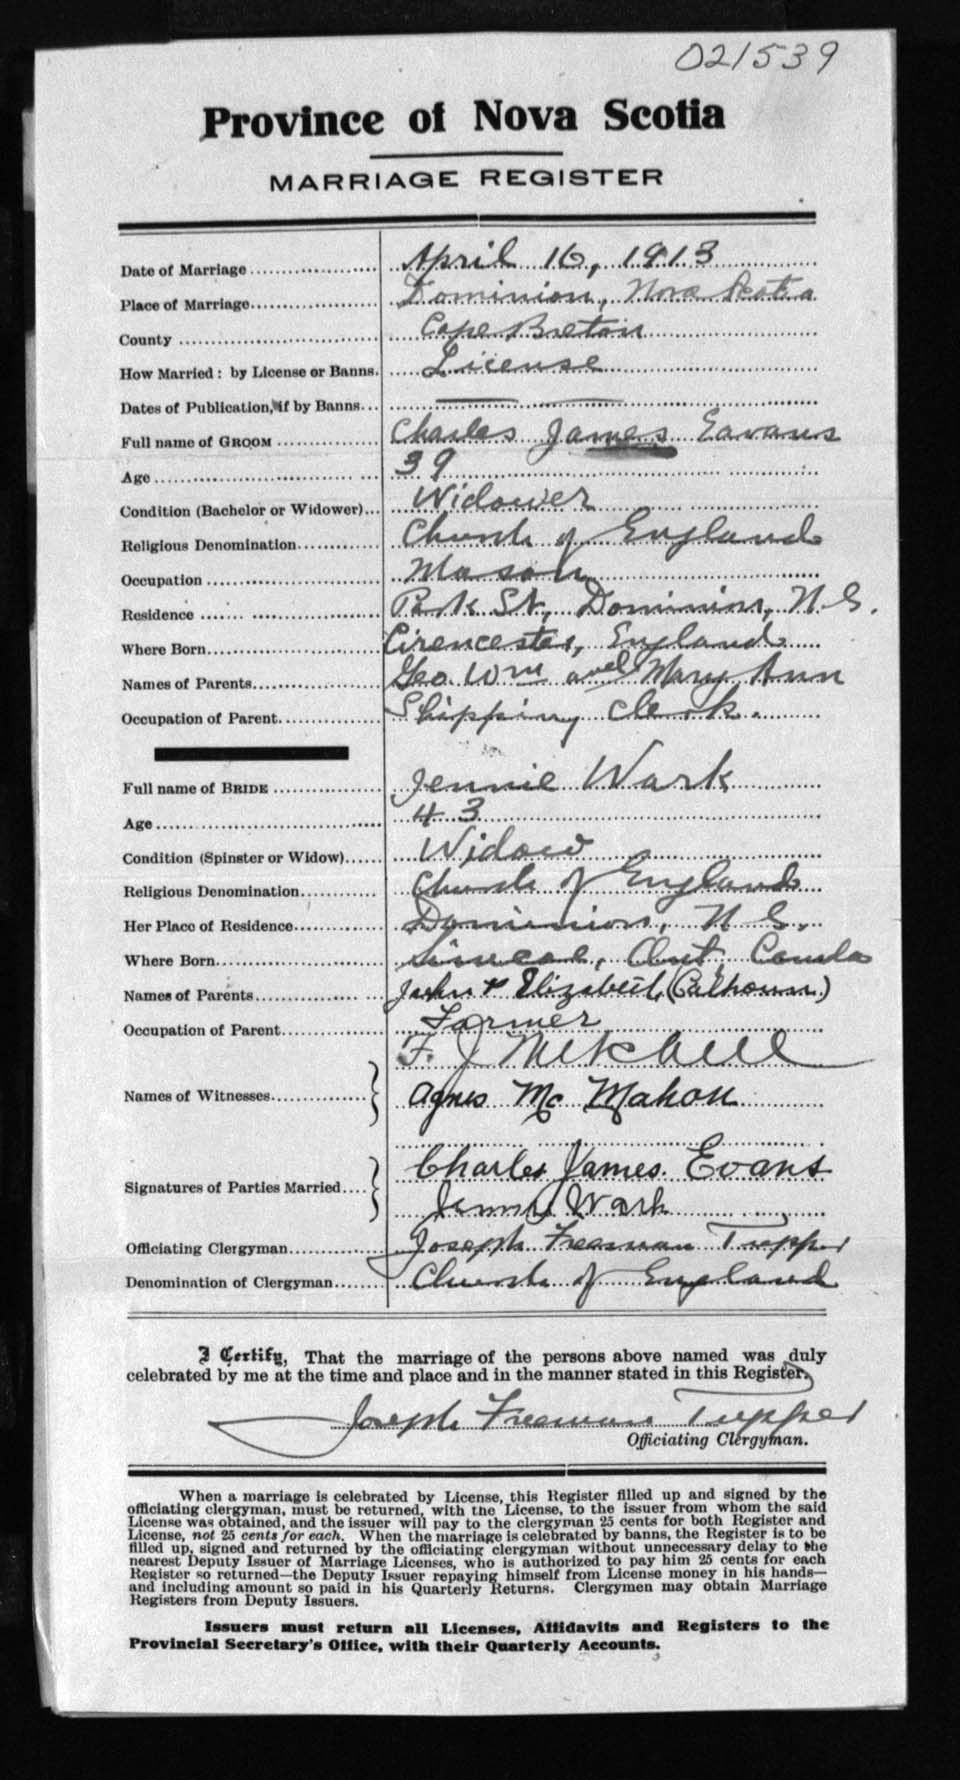 021539
Province of Nova Scotia
MARRIAGE REGISTER
Date of Marriage April 16, 1913
Place of Marriage Dominion, Nova Scotia
County Cape Breton
How Married: by License or Banns. License
Dates of Publication, if by Banns
Full name of GROOM Charles James Eavans
Age 39
Condition (Bachelor or Widower) Widower
Religious Denomination Church of England
Occupation Mason
Residence Park St, Dominion, N.S.
Where Born Cirencester, England
Names of Parents Geo. Wm and Mary Ann
Occupation of Parent Shipping Clerk.
Full name of BRIDE Jennie Wark
Age 43
Condition (Spinster or Widow) Widow
Religious Denomination Church of England
Her Place of Residence Dominion, N.S.
Where Born Ont, Canada
Names of Parents John & Elizabeth (Calhoun)
Occupation of Parent Farmer
F. J Mitchell
Names of Witnesses Agnes Mc Mahon
Charles James Evans
Signatures of Parties Married
Jenny Wark
Officiating Clergyman Joseph Freeman Tupper
Denomination of Clergyman Church of England
I Certify, That the marriage of the persons above named was duly
celebrated by me at the time and place and in the manner stated in this Register.
Joseph Freeman Tupper
Officiating Clergyman.
When a marriage is celebrated by License, this Register filled up and signed by the
officiating clergyman, must be returned, with the License, to the issuer from whom the said
License was obtained, and the issuer will pay to the clergyman 25 cents for both Register and
License, not 25 cents for each. When the marriage is celebrated by banns, the Register is to be
filled up, signed and returned by the officiating clergyman without unnecessary delay to the
nearest Deputy Issuer of Marriage Licenses, who is authorized to pay him 25 cents for each
Register so returned—the Deputy Issuer repaying himself from License money in his hands—
and including amount so paid in his Quarterly Returns. Clergymen may obtain Marriage
Registers from Deputy Issuers.
Issuers must return all Licenses, Affidavits and Registers to the
Provincial Secretary's Office, with their Quarterly Accounts.